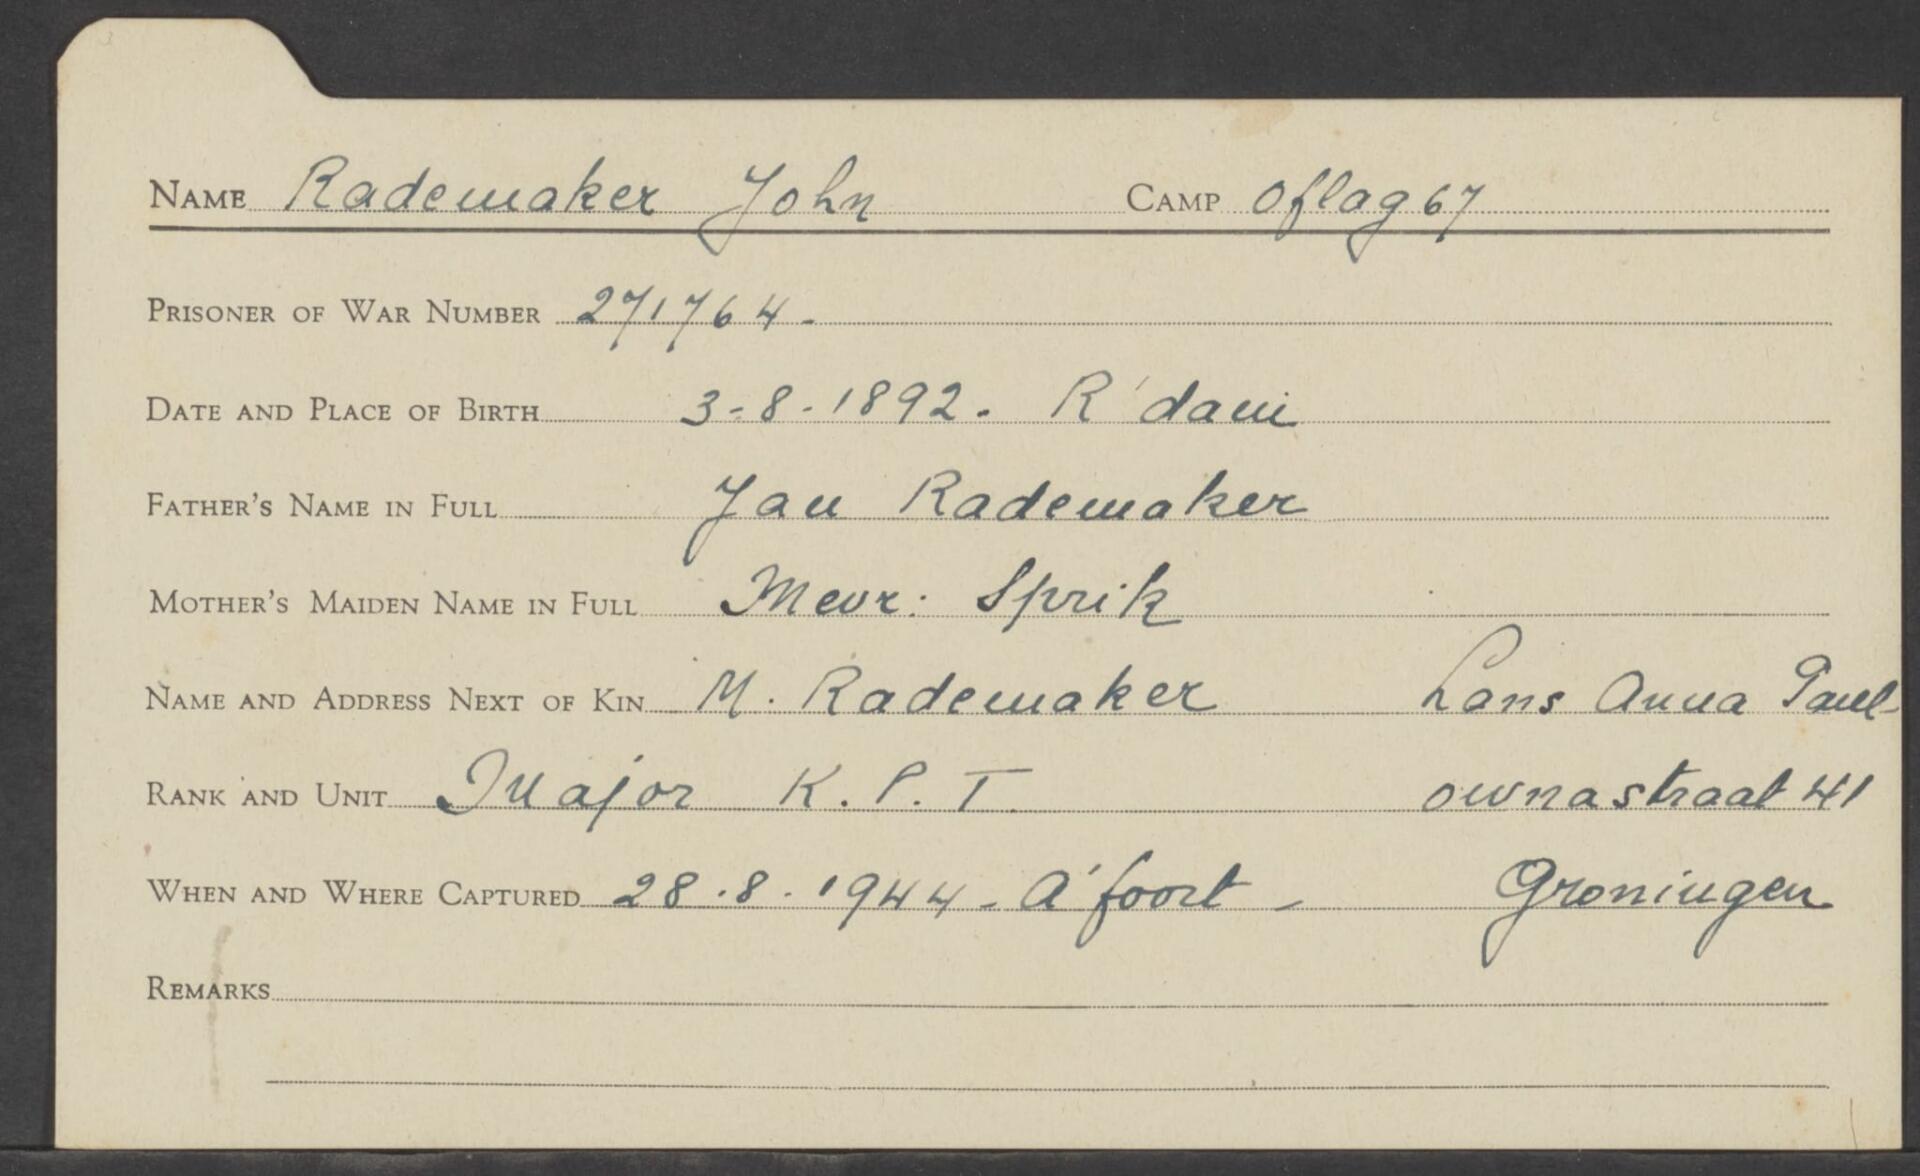 NAME Rademaker John CAMP Oflag 67
PRISONER OF WAR NUMBER 271764-
DATE AND PLACE OF BIRTH 3-8-1892. R'dam
FATHER'S NAME IN FULL Jan Rademaker
MOTHER'S MAIDEN NAME IN FULL Mevr: Sprik
NAME AND ADDRESS NEXT OF KIN M. Rademaker Lans Anna Paul-
RANK AND UNIT Major K.P.T. ownastraat 41
WHEN AND WHERE CAPTURED 28.8.1944 - A'foort - Groningen
REMARKS